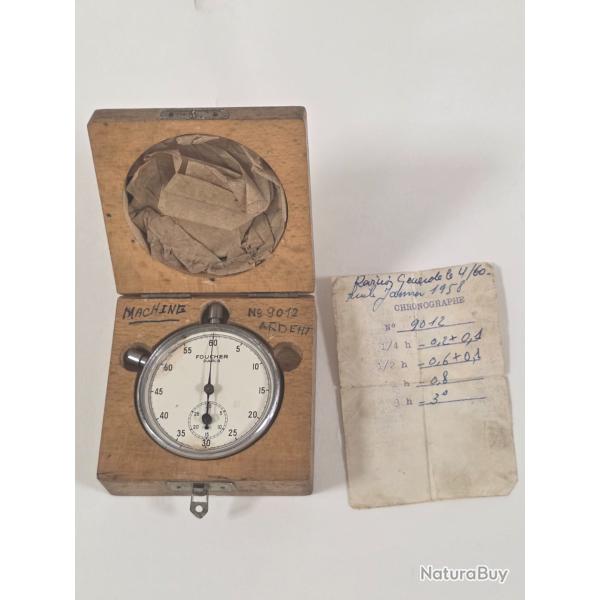 MACHINE
No 9012
ARDENT
60
55 5
50 10
45 15
40 20
35 25
30
FOUCHER
PARIS
Generale le 4/60
Janvier 1958
CHRONOGRAPHE
No 9012
1/4 h = 0,2 + 0,1
1/2 h = 0,6 + 0,1
h = 0,8
h = 3°
NaturaBuy